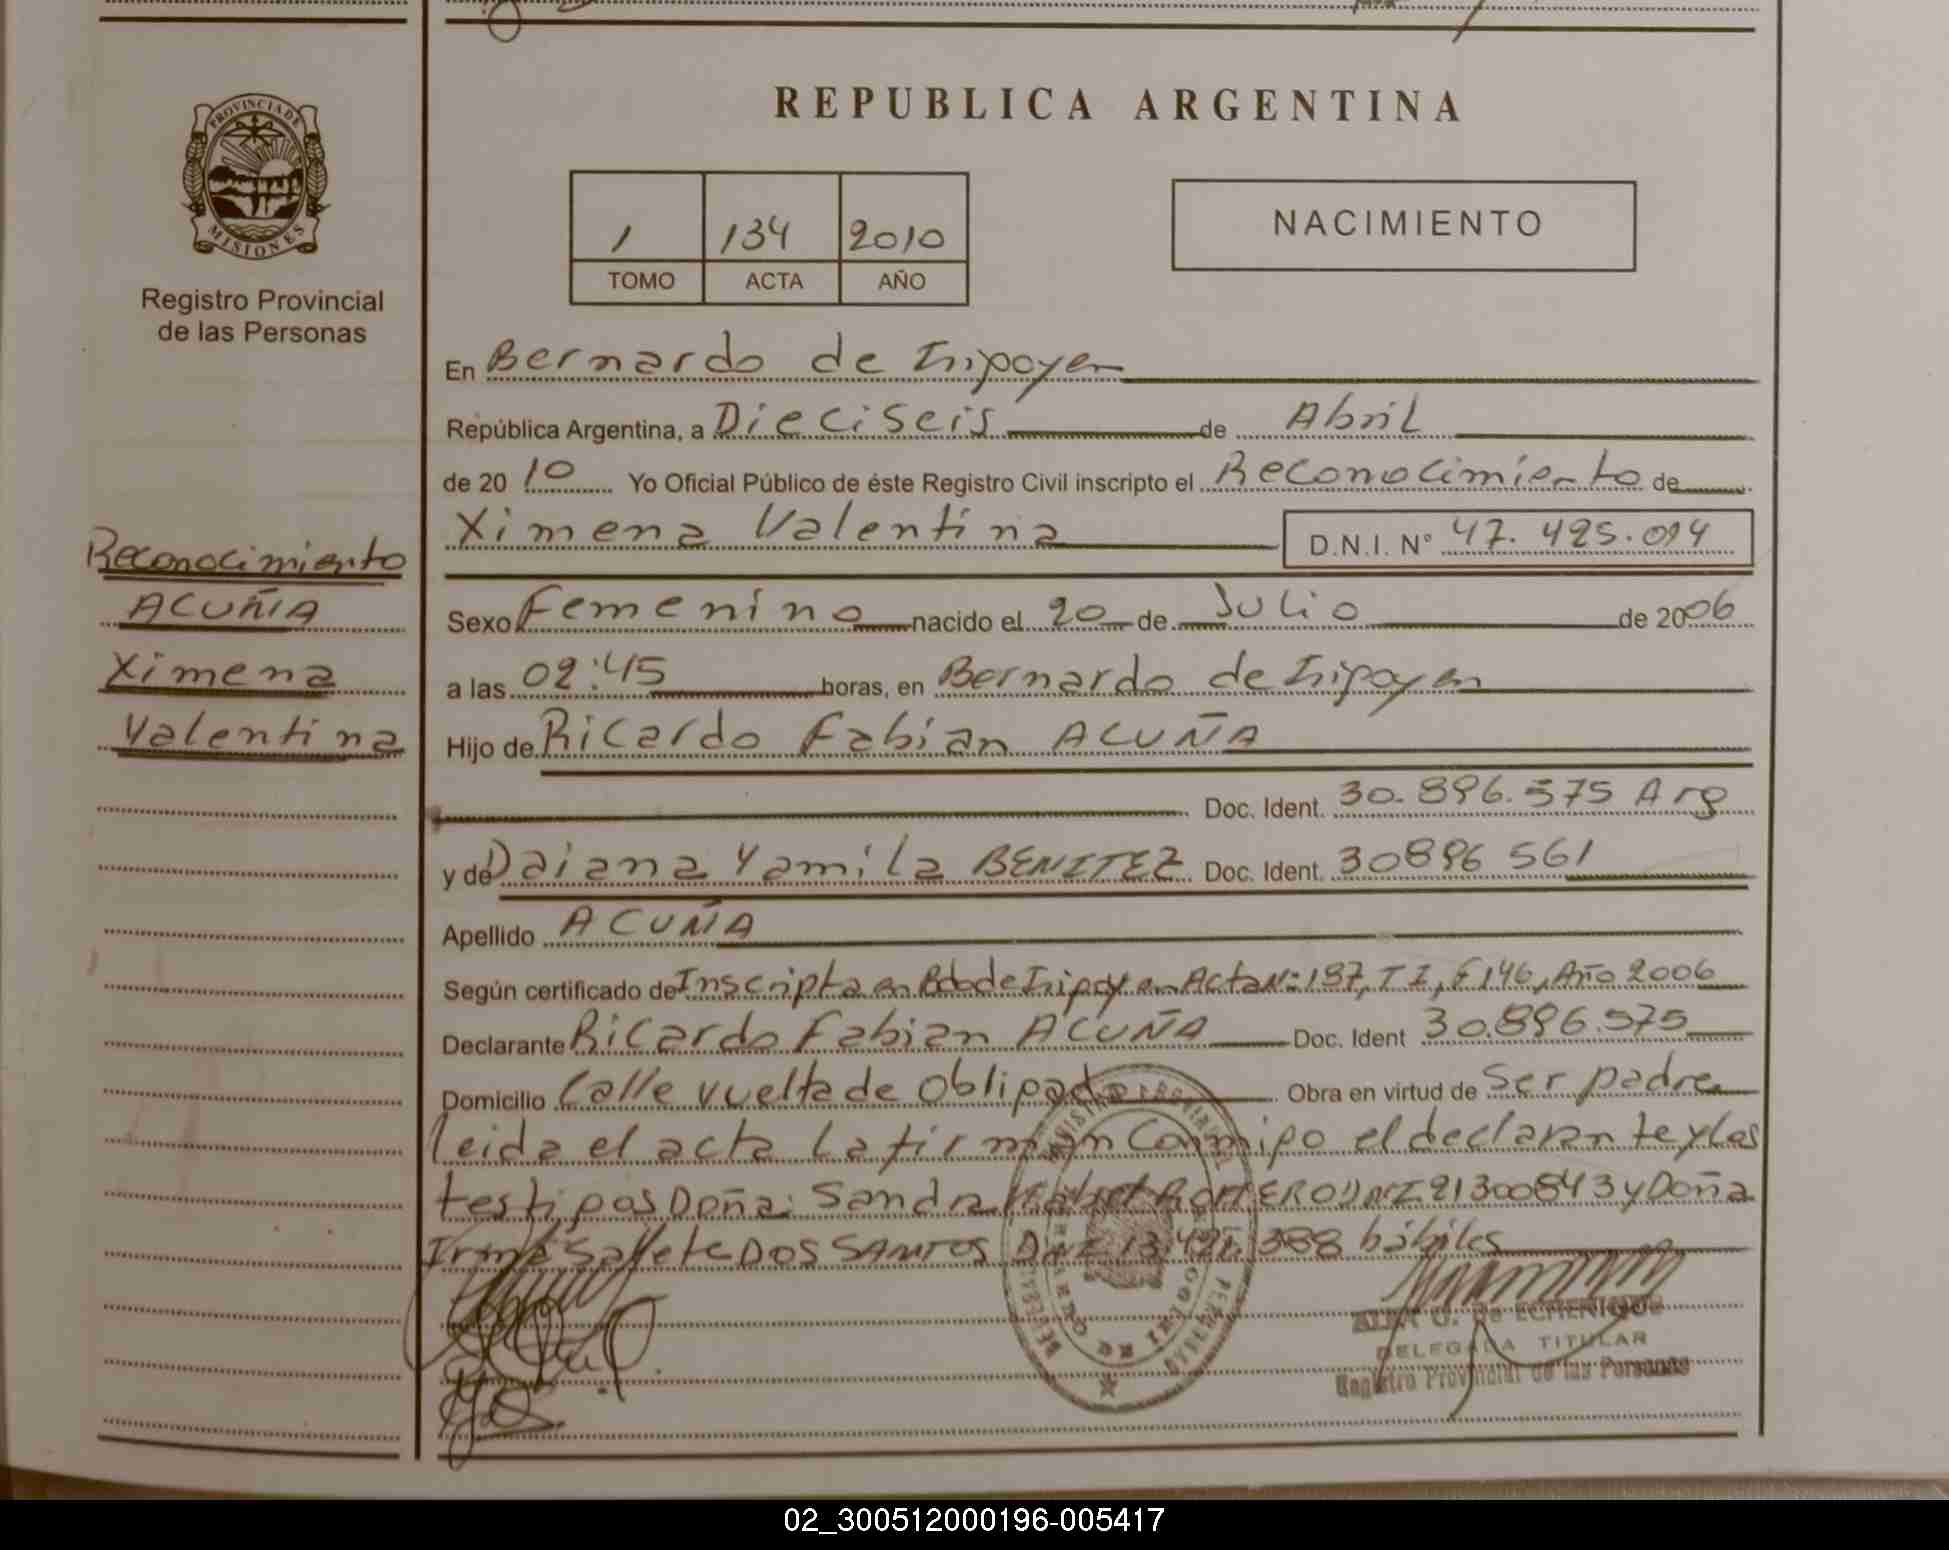 REPUBLICA ARGENTINA
PROVINCIA DE
MISIONES
Registro Provincial
de las Personas
1 134 2010
TOMO ACTA AÑO
NACIMIENTO
En Bernardo de Irigoyen
República Argentina, a Dieciseis de Abril
de 2010 Yo Oficial Público de éste Registro Civil inscripto el Reconocimiento de
Ximena Valentina D.N.I. Nº 47.425.094
Reconocimiento
ACUÑA
Ximena
Valentina
Sexo Femenino nacido el 20 de Julio de 2006
a las 02:45 horas, en Bernardo de Irigoyen
Hijo de Ricardo Fabian ACUÑA
Doc. Ident. 30.896.575 Arg
y de Daiana Yamila BENITEZ Doc. Ident. 30896 561
Apellido ACUÑA
Según certificado de Inscripta en Bdo de Irigoyen Acta Nº 187, T I, F 146, Año 2006
Declarante Ricardo Fabian ACUÑA Doc. Ident 30.896.575
Domicilio Calle vuelta de Obligado Obra en virtud de Ser padre
leida el acta la firman Conmigo el declarante y los
testigos Doña: Sandra ROMERO DNI 21300843 y Doña
Irma Sallete DOS SANTOS DNI 388 hábiles
DE ECHENIQUE
DELEGADA TITULAR
Registro Provincial de las Personas
02_300512000196-005417